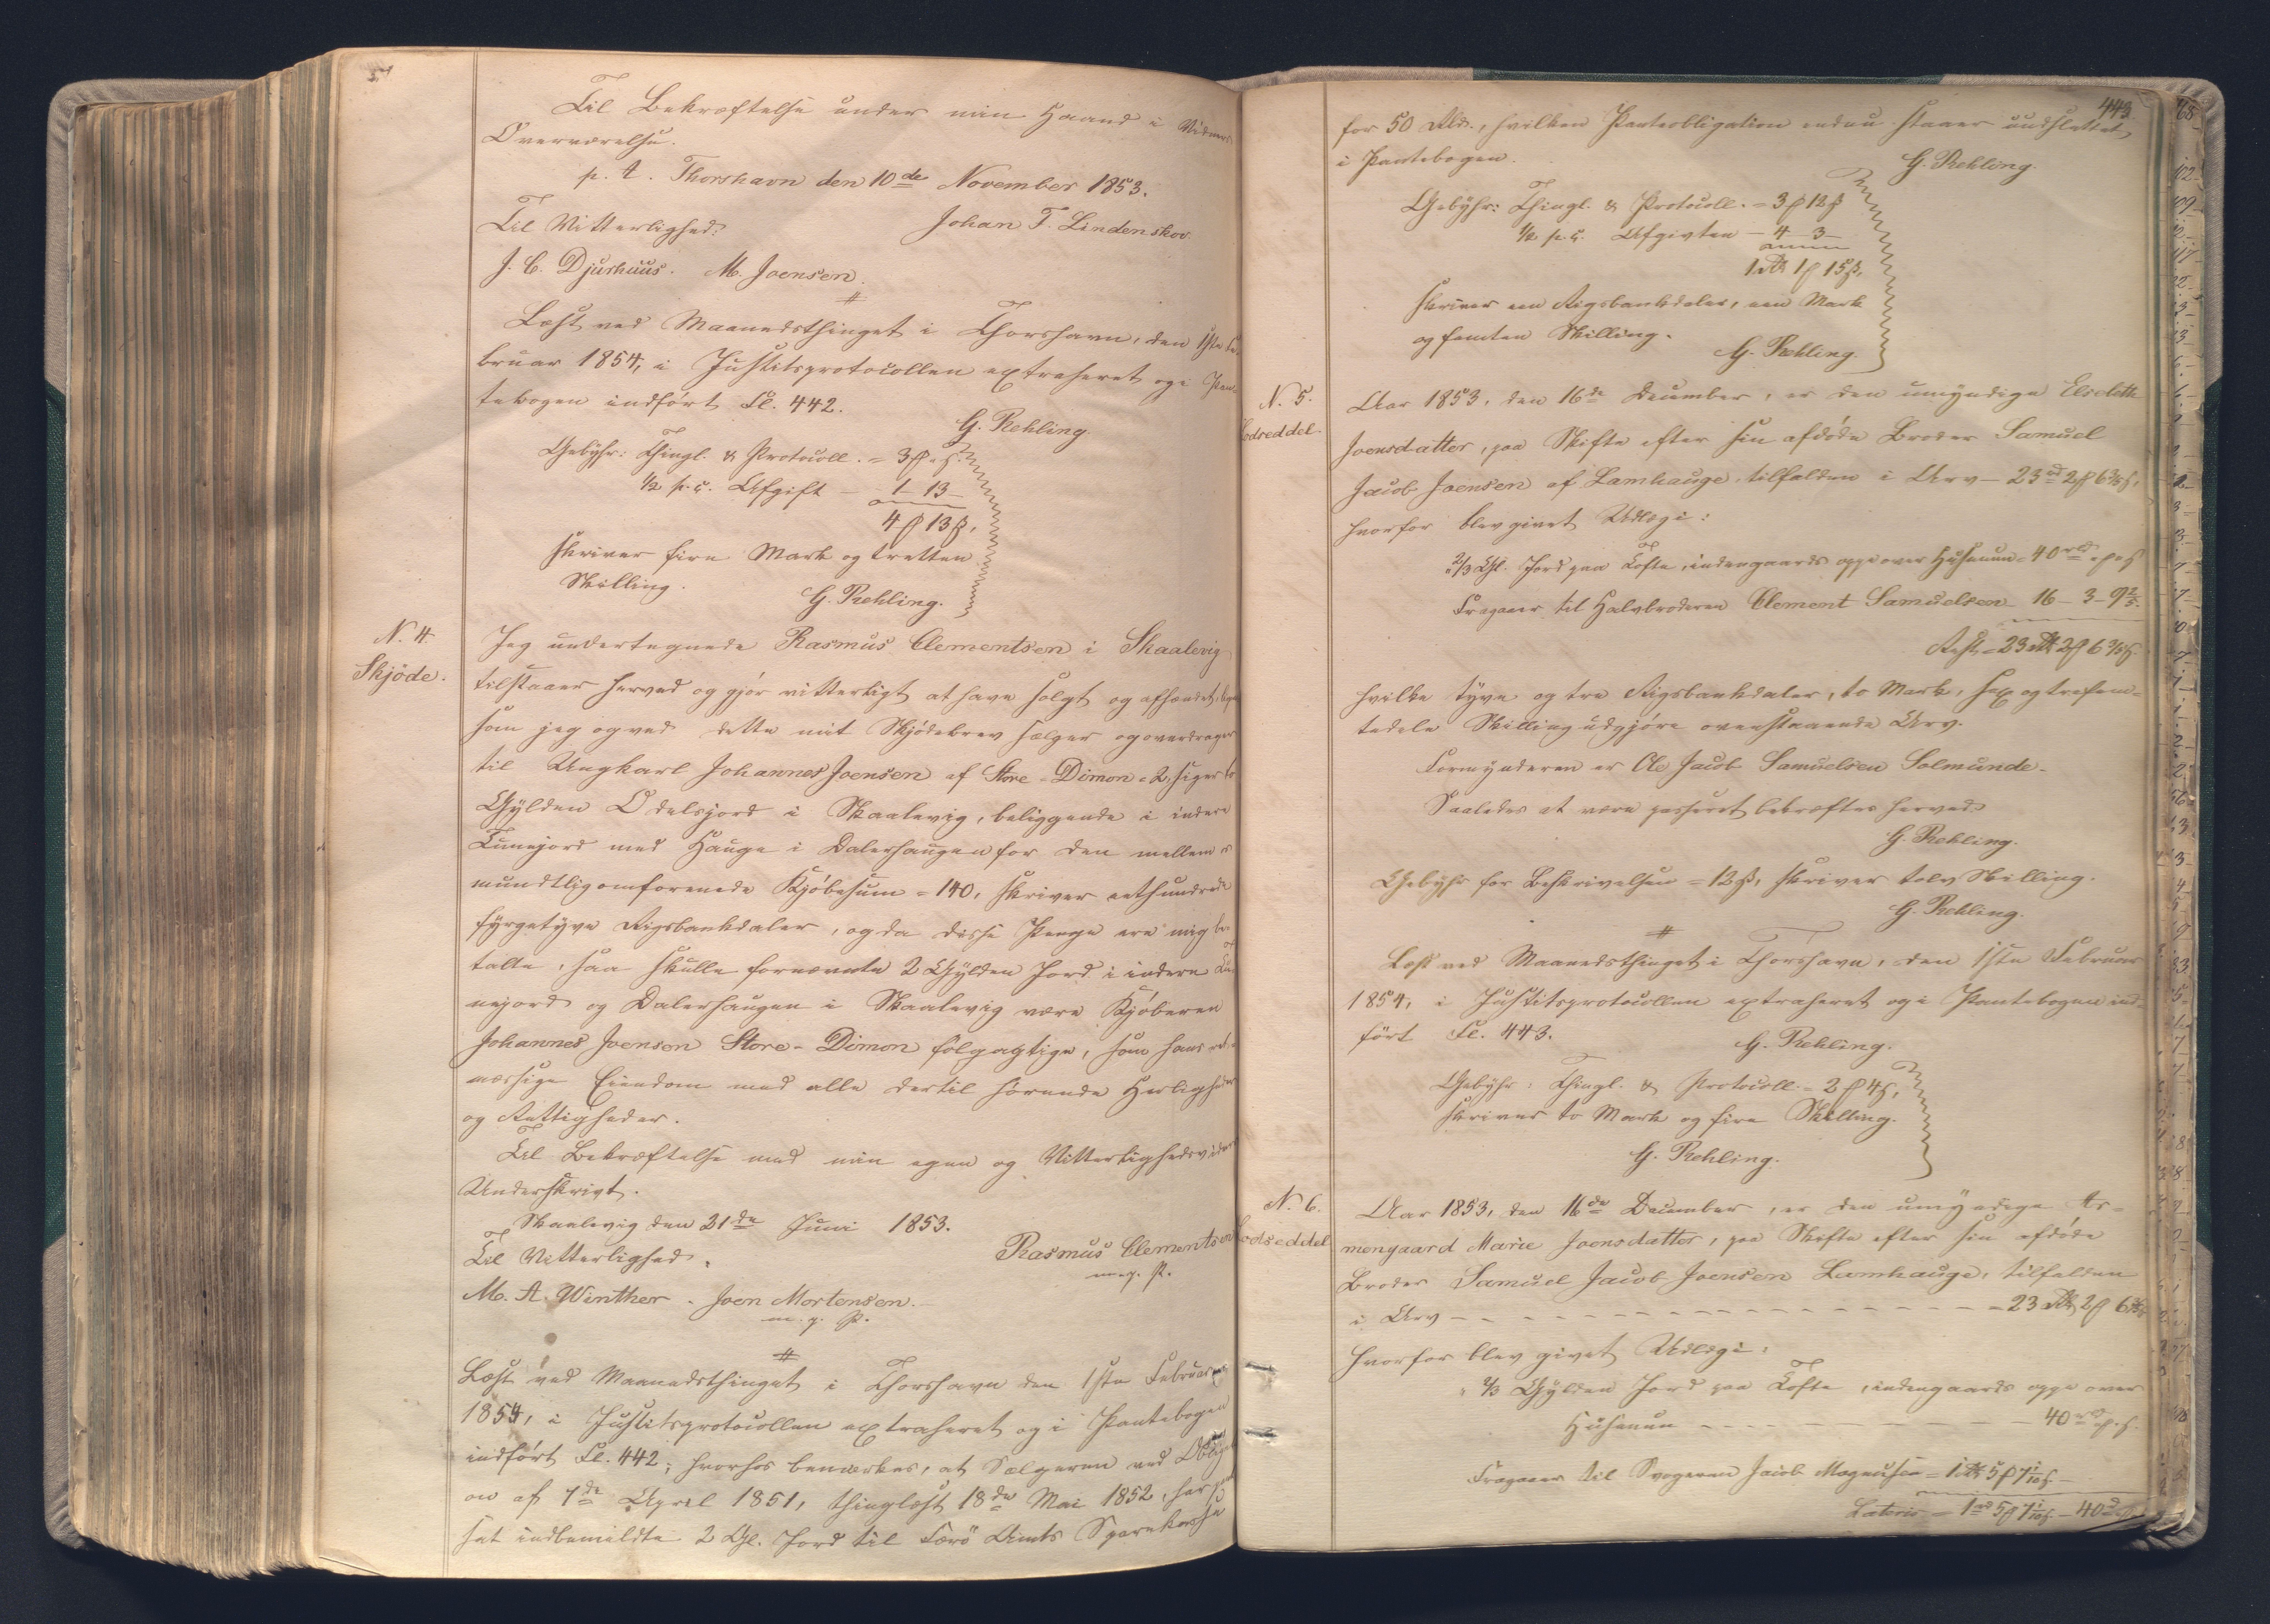 Til Bekræftelse under min Haand i Vidners
Overværelse.
p. t. Thorshavn den 10de November 1853.
Til Vitterlighed: Johan T. Lindenskov.
J. C. Djurhuus. M. Joensen.
#
Læst ved Maanedsthinget i Thorshavn, den 1ste Fe-
bruar 1854, i Justitsprotocollen extraheret og i Pan-
tebogen indført Fl. 442.
G. Rehling.
Gebyhr: Thingl. & Protocoll. = 3
1/2 p. C. Afgift — 1 13
4 13
skriver fire Mark og tretten
Skilling.
G. Rehling.
N. 4.
Skjøde.
Jeg undertegnede Rasmus Clementsen i Skaalevig
tilstaaer herved og gjør vitterligt at have solgt og afhændet,
som jeg og ved dette mit Skjødebrev sælger og overdrager
til Ungkarl Johannes Joensen af Store-Dimon 2, siger to
Gylden Odelsjord i Skaalevig, beliggende i indere
Tunejord med Hauge i Dalershaugen for den mellem os
mundtlig omforenede Kjøbesum = 140, skriver eethundrede
fyrgetyve Rigsbankdaler, og da disse Penge ere mig be-
talte, saa skulle fornævnte 2 Gylden Jord i indere Tu-
nejord og Dalershaugen i Skaalevig være Kjøberen
Johannes Joensen Store-Dimon følgagtige, som hans ret-
mæssige Eiendom med alle dertil hørende Herligheder
og Rettigheder.
Til Bekræftelse med min egen og Vitterlighedsvidners
Underskrivt.
Skaalevig den 21de Juni 1853.
Til Vitterlighed. Rasmus Clementsen
m. p.
M. A. Winther. Joen Mortensen.
#
Læst ved Maanedsthinget i Thorshavn den 1ste Februar
1854, i Justitsprotocollen extraheret og i Pantebogen
indført Fl. 442; hvorhos bemærkes, at Sælgeren ved Obligati-
on af 7de April 1851, thinglæst 18de Mai 1852, har pant-
sat indbemeldte 2 Gl. Jord til Færø Amts Sparekasse
443.
for 50 Rbd., hvilken Panteobligation endnu staaer uudslettet
i Pantebogen.
G. Rehling.
Gebyhr: Thingl. & Protocoll. = 3 12
1/2 p. C. Afgivten — 4 3
1 1 15
skriver een Rigsbankdaler, een Mark
og femten Skilling.
G. Rehling.
N. 5.
Lodseddel.
Aar 1853, den 16de December, er den umyndige Elsebeth
Joensdatter, paa Skifte efter sin afdøde Broder Samuel
Jacob Joensen af Lamhauge, tilfalden i Arv — 23 2 6 3/5
hvorfor blev givet Udlæg i:
2/3 Gl. Jord paa Tofte, indengaards oppe over Husenun = 40
Fragaaer til Halvbroderen Clement Samuelsen 16 — 3 — 9 2/5
Rest = 23 2 6 3/5
hvilke tyve og tre Rigsbankdaler, to Mark, sex og trefem-
tedele Skilling udgjøre ovenstaaende Arv.
Formynderen er Ole Jacob Samuelsen Solmunde.
Saaledes at være passeret bekræftes herved.
G. Rehling.
Gebyhr for Beskrivelsen = 12 ß, skriver tolv Skilling.
G. Rehling.
#
Læst ved Maanedsthinget i Thorshavn, den 1ste Februar
1854, i Justitsprotocollen extraheret og i Pantebogen ind-
ført Fl. 443.
G. Rehling.
Gebyhr: Thingl. & Protocoll. = 2 4
skriver to Mark og fire Skilling.
G. Rehling.
N. 6.
Lodseddel
Aar 1853, den 16de December, er den umyndige Ar-
mengaard Marie Joensdatter, paa Skifte efter sin afdøde
Broder Samuel Jacob Joensen Lamhauge, tilfalden
i Arv — 23 2 6 3/5
hvorfor blev givet Udlæg i:
2/3 Gylden Jord paa Tofte, indengaards oppe over
Husenun — 40
Fragaaer til Svogeren Jacob Magnussen = 1 5 7 1/10
Lateris = 1 5 7 1/10 — 40